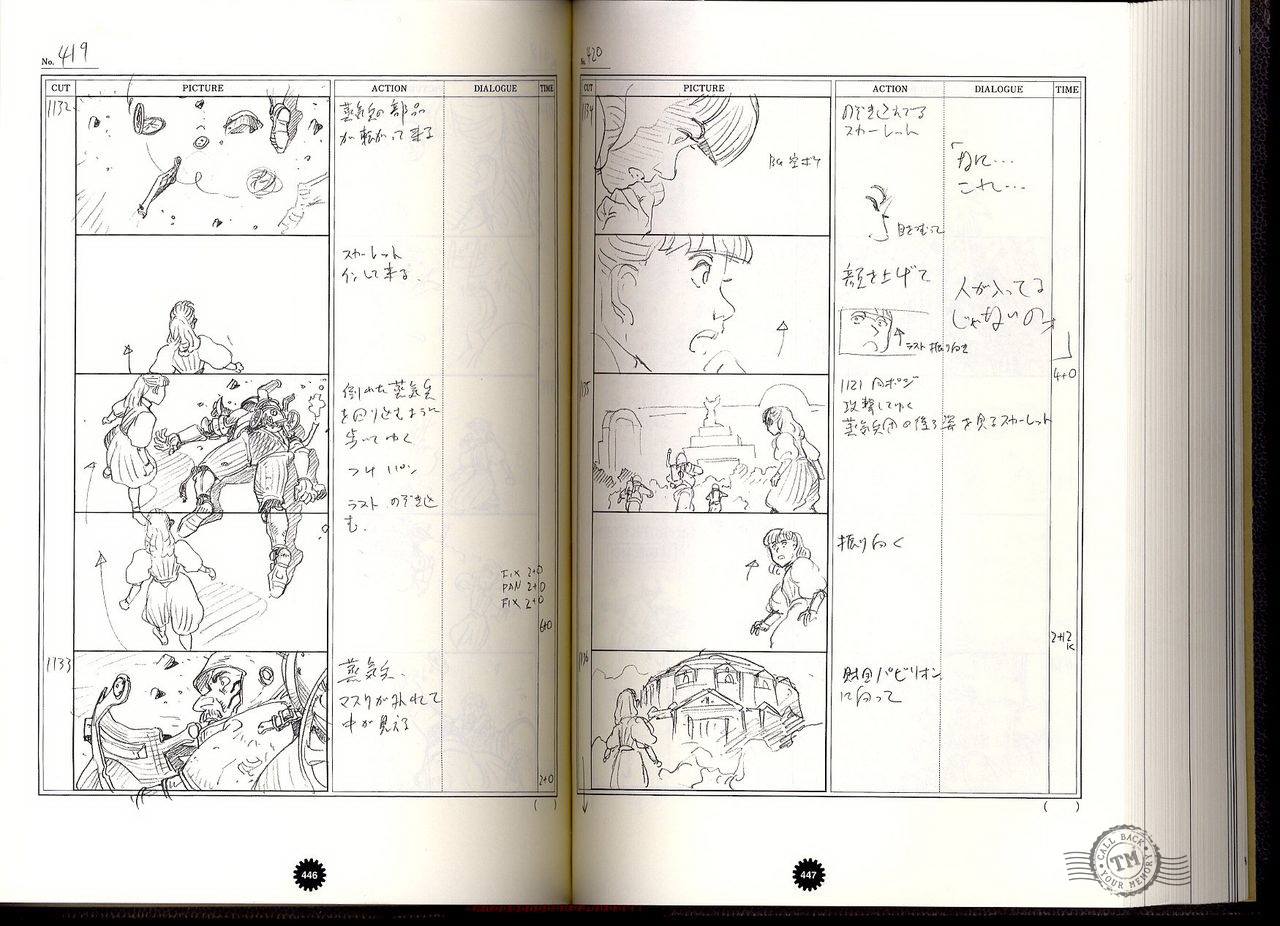 No. 419
CUT PICTURE ACTION DIALOGUE TIME
1132
蒸気兵の部品
が転がって来る
スカーレット
インして来る
倒れた蒸気兵
を回り込むように
歩いてゆく
つけ 110%
ラスト のぞき込
む.
FIX 2+0
PAN 2+0
FIX 2+0
6+0
1133
蒸気兵.
マスクが外れて
中が見える
2+0
( )
446
No. 420
CUT PICTURE ACTION DIALOGUE TIME
1134
BG 空ボケ
のぞき込んでる
スカーレット
「なに…
これ…
目をむって
顔を上げて
人が入ってる
じゃないの
ラスト 振り向き
4+0
1135
1121 同ポジ
攻撃してゆく
蒸気兵団の後ろ姿を見るスカーレット
振り向く
2+12
K
1136
財団パビリオン
に向って
( )
447
CALL BACK
TM
YOUR MEMORY